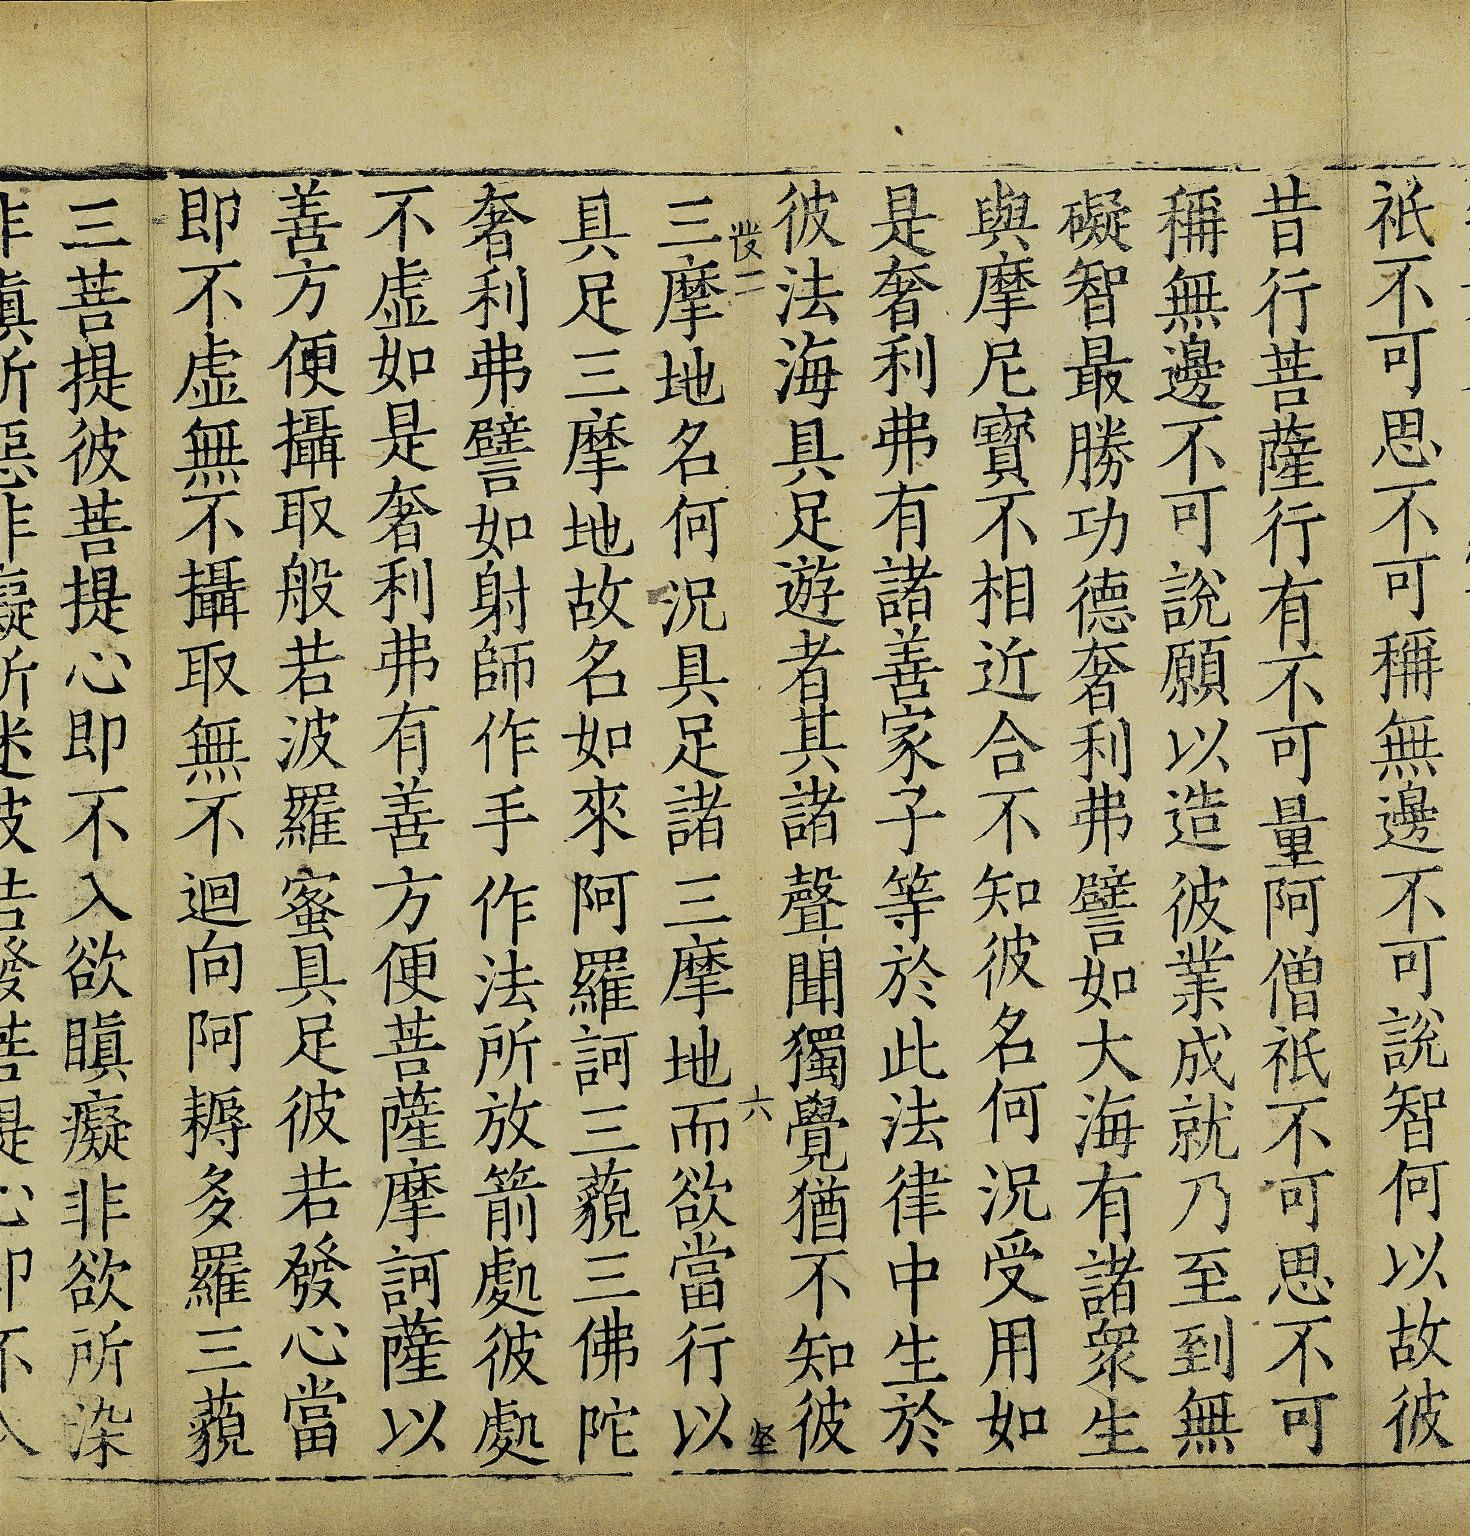 祇不可思不可稱無邊不可說智何以故彼
昔行菩薩行有不可量阿僧祇不可思不可
稱無邊不可說願以造彼業成就乃至到無
礙智最勝功德奢利弗譬如大海有諸眾生
與摩尼寶不相近合不知彼名何況受用如
是奢利弗有諸善家子等於此法律中生於
彼法海具足遊者其諸聲聞獨覺猶不知彼
二 六
三摩地名何況具足諸三摩地而欲當行以
具足三摩地故名如來阿羅訶三藐三佛陀
奢利弗譬如射師作手作法所放箭處彼處
不虛如是奢利弗有善方便菩薩摩訶薩以
善方便攝取般若波羅蜜具足彼若發心當
即不虛無不攝取無不迴向阿耨多羅三藐
三菩提彼菩提心即不入欲瞋癡非欲所染